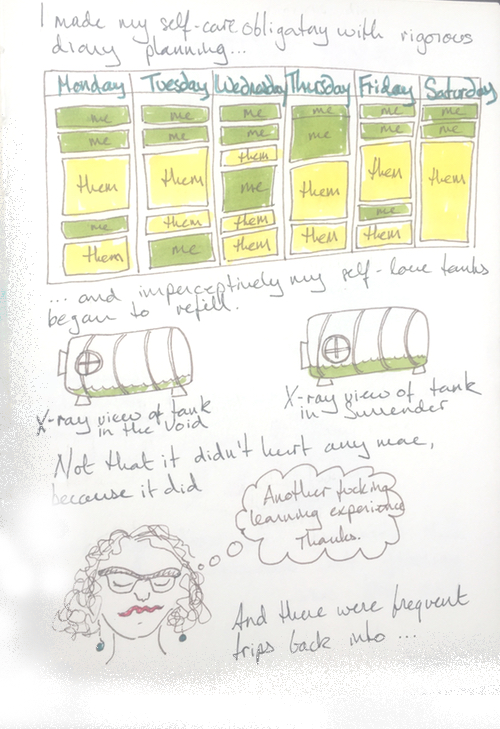 I made my self-care obligatory with rigorous
diary planning...
Monday Tuesday Wednesday Thursday Friday Saturday
me me me me me me
me me me me me me
them them them me them them
them them
me them them me
them me them them them
... and imperceptively my self-love tanks
began to refill.
X-ray view of tank
in the void
X-ray view of tank
in Surrender
Not that it didn't hurt any more,
because it did
Another fucking
learning experience
Thanks.
And there were frequent
trips back into ...